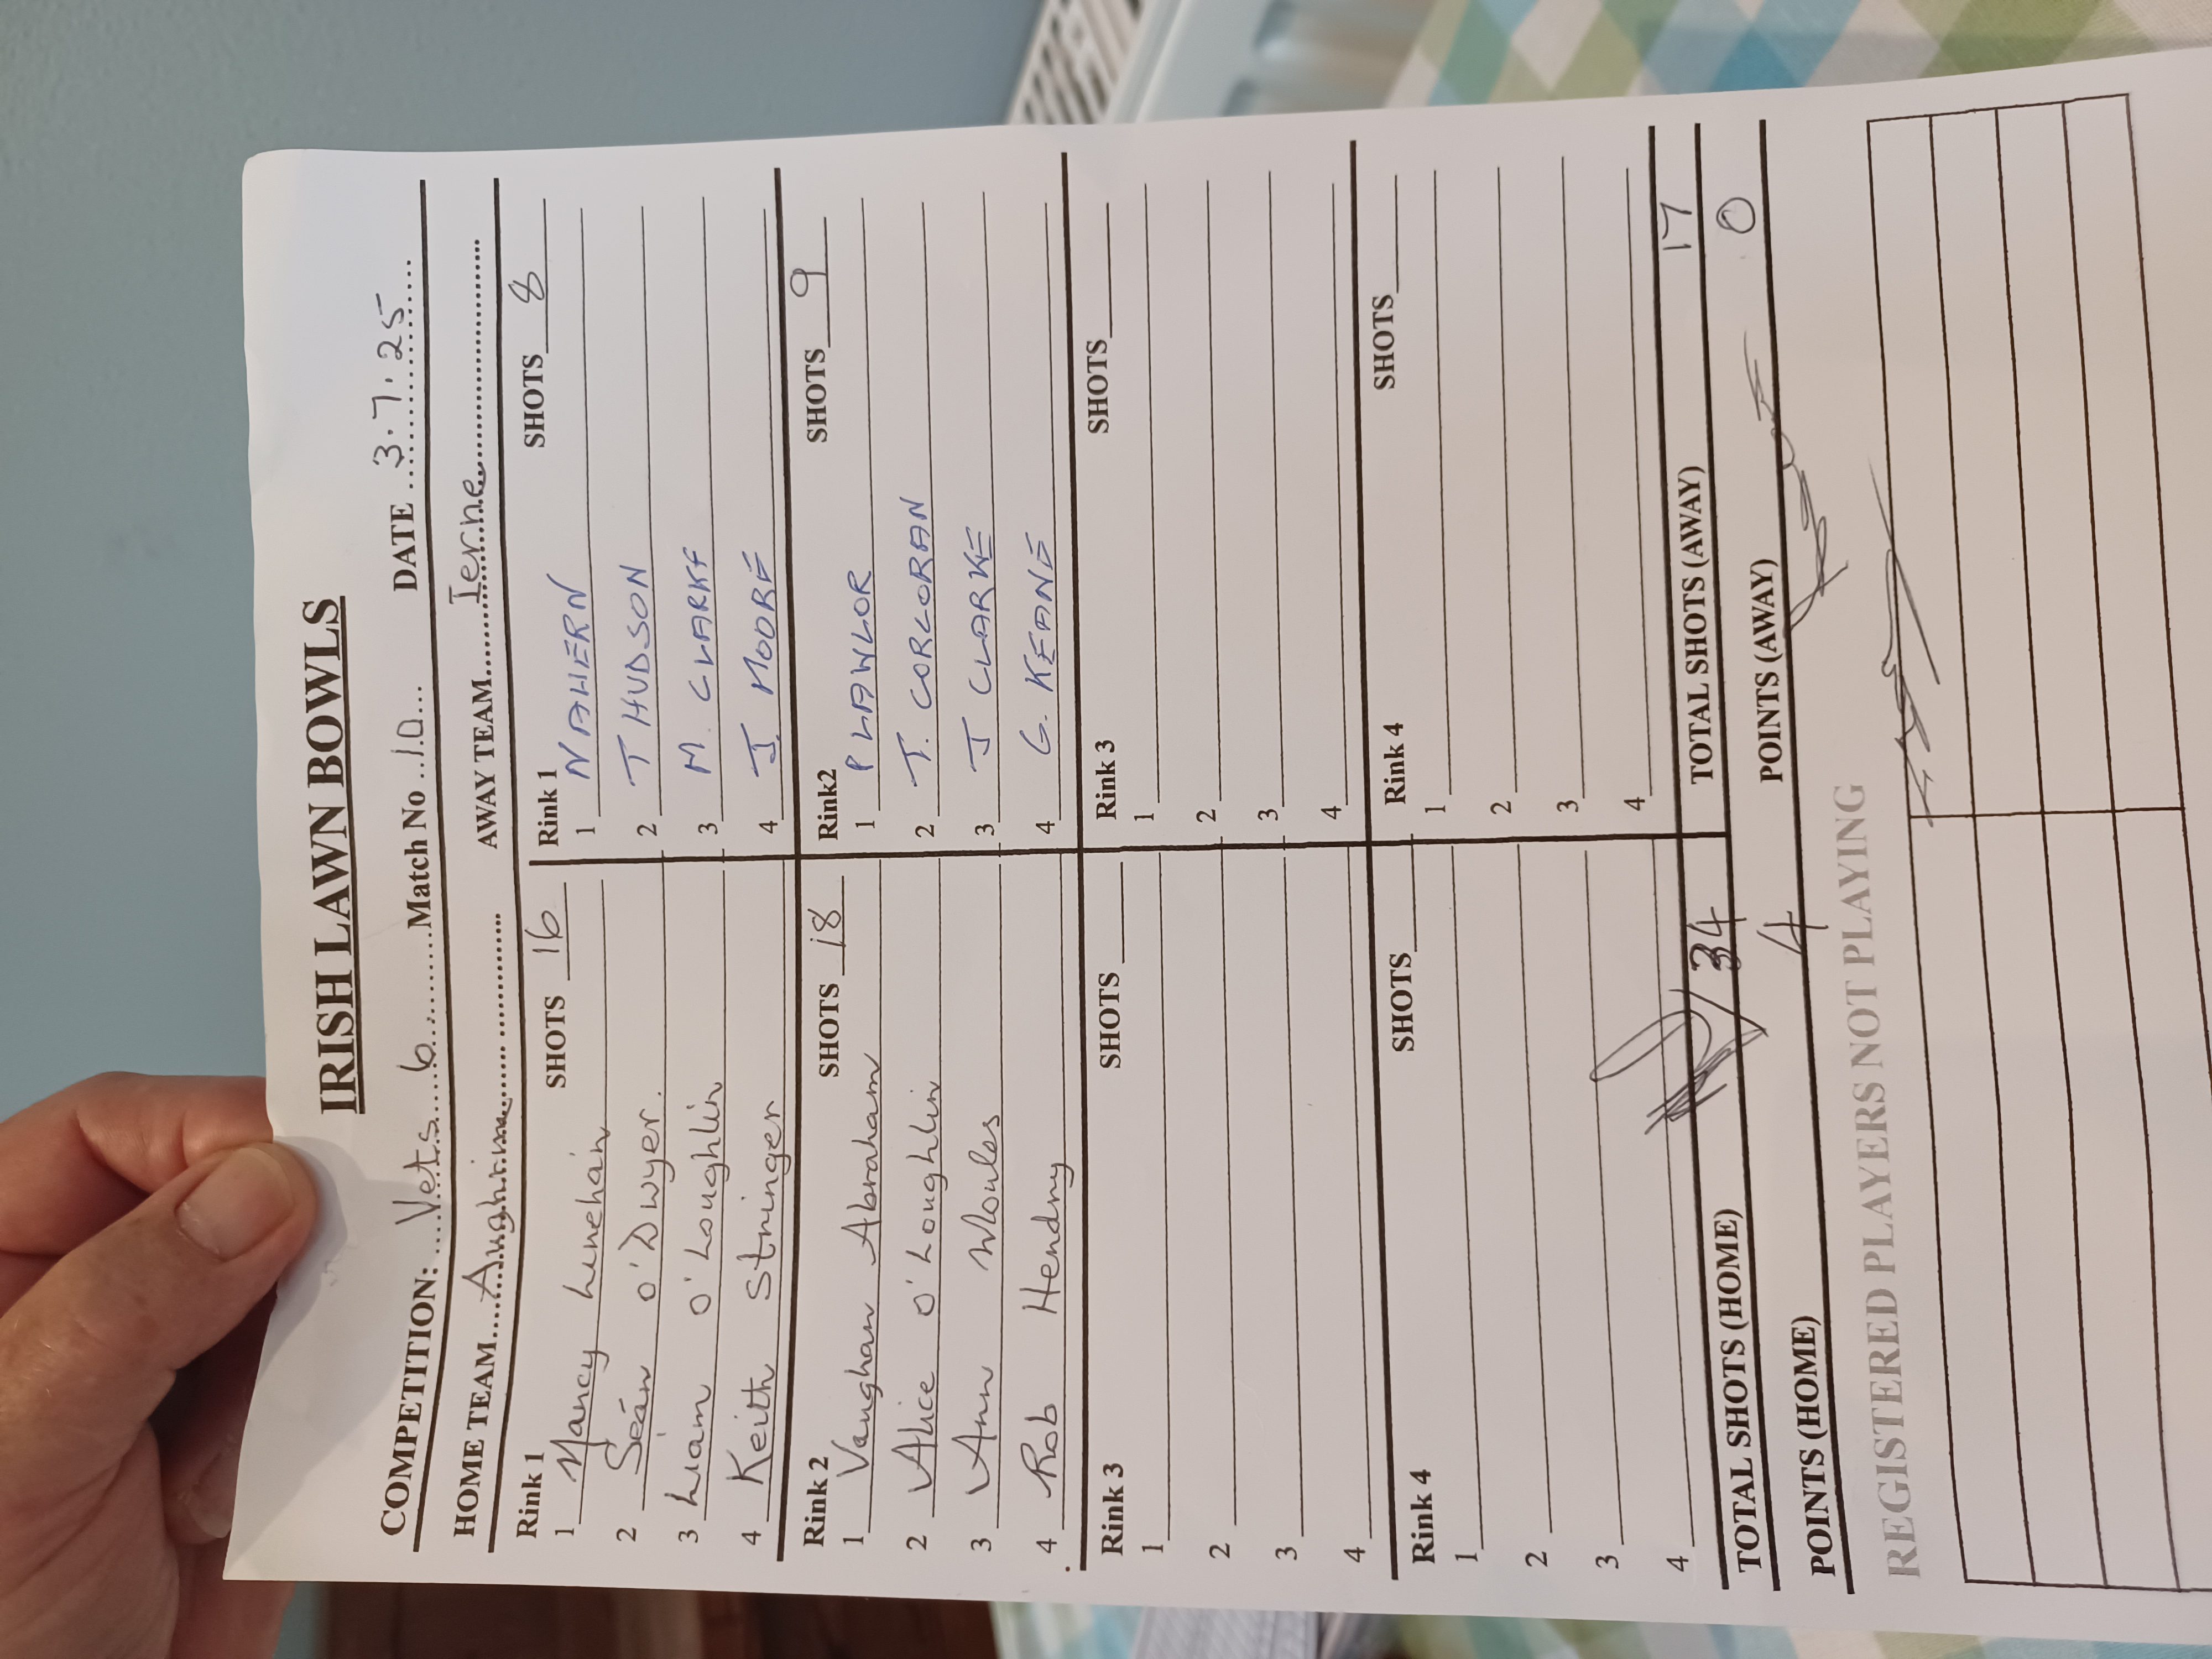 IRISH LAWN BOWLS
COMPETITION: Vets 6 Match No 10 DATE 3.7.25
HOME TEAM Aughrim AWAY TEAM Ierne
Rink 1 SHOTS 16 Rink 1 SHOTS 8
1 Nancy Lenehan 1 N AHERN
2 Seán O'Dwyer. 2 T HUDSON
3 Liam O'Loughlin 3 M. CLARKE
4 Keith Stringer 4 J. MOORE
Rink 2 SHOTS 18 Rink2 SHOTS 9
1 Vaughan Abraham 1 P LAWLOR
2 Alice O'Loughlin 2 T. CORCORAN
3 Ann Woules 3 J CLARKE
4 Rob Hendry 4 G. KEANE
Rink 3 SHOTS Rink 3 SHOTS
1 1
2 2
3 3
4 4
Rink 4 SHOTS Rink 4 SHOTS
1 1
2 2
3 3
4 4
TOTAL SHOTS (HOME) 34 TOTAL SHOTS (AWAY) 17
POINTS (HOME) 4 POINTS (AWAY) 0
REGISTERED PLAYERS NOT PLAYING